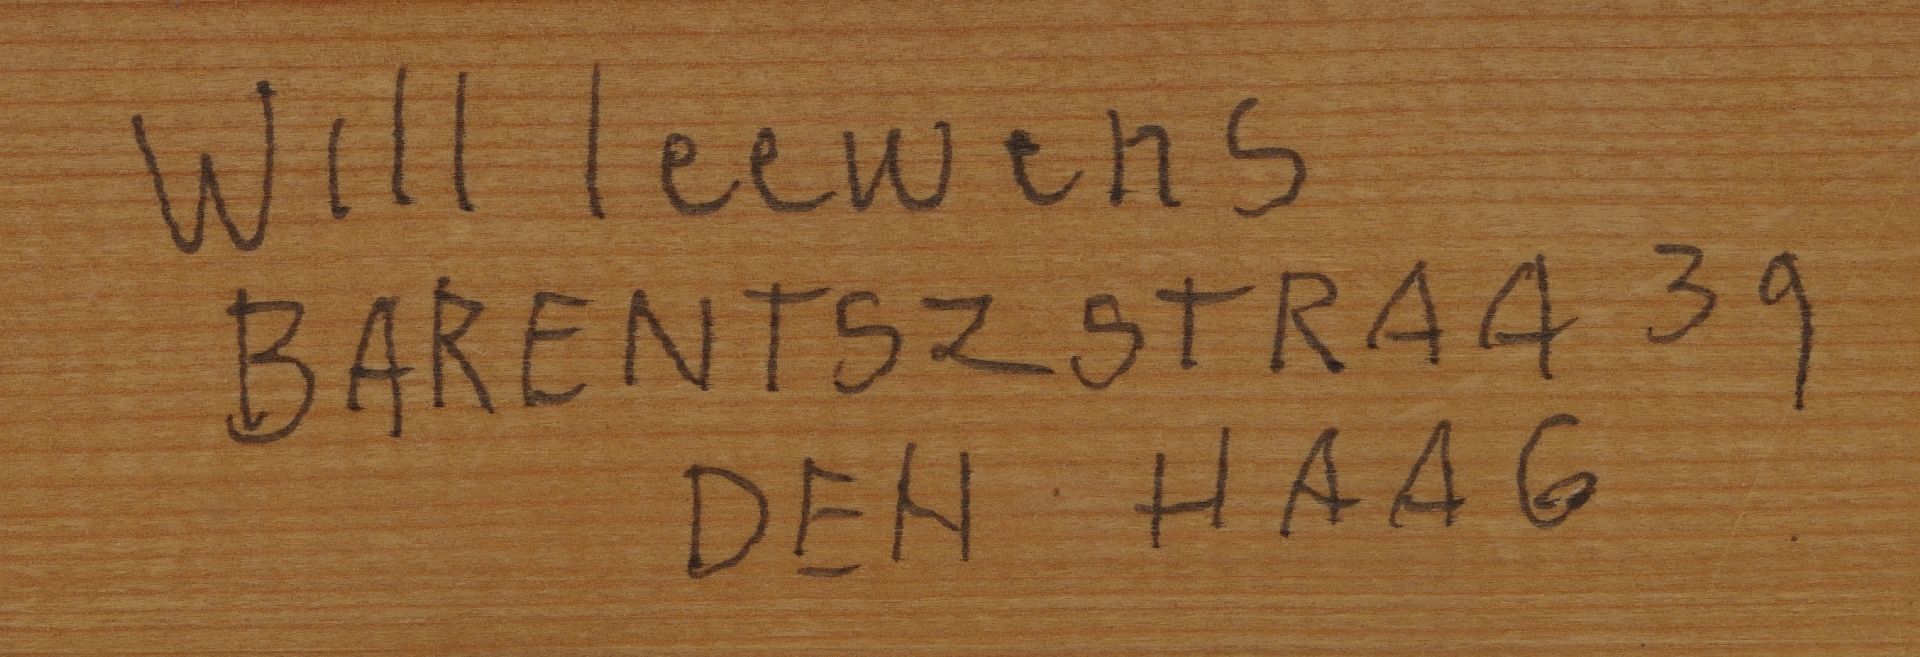 Will leewens
BARENTSZSTRAA 39
DEN HAAG